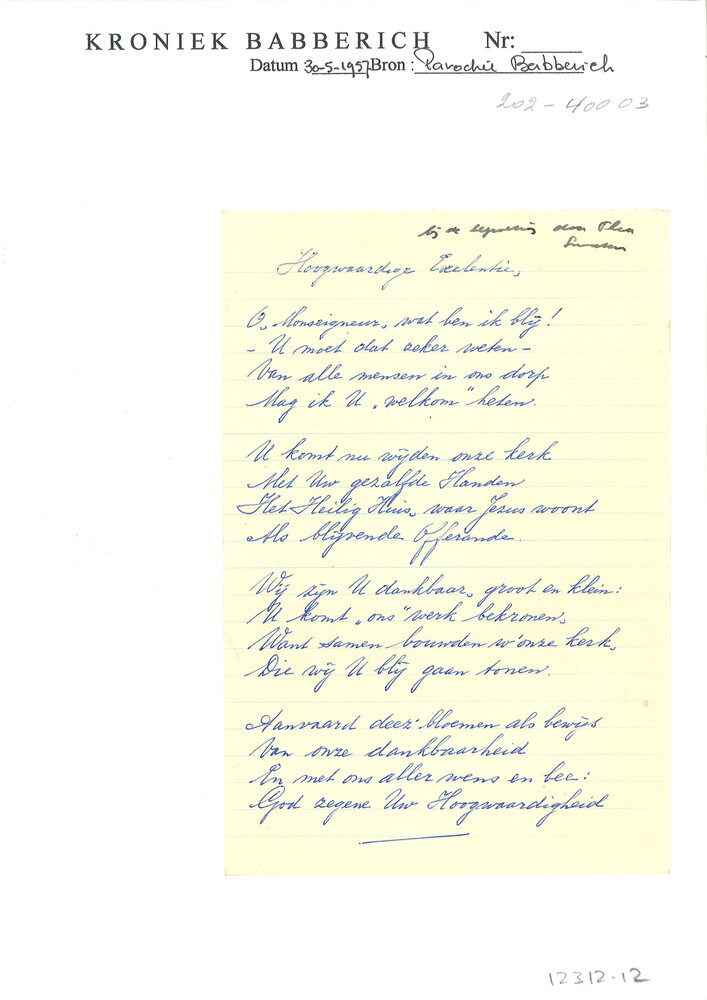 KRONIEK BABBERICH Nr:
Datum 30-5-1957 Bron : Parochie Babberich
202-40003
bij de door Thea
Hoogwaardige Exelentie,
O, Monseigneur, wat ben ik blij!
- U moet dat zeker weten -
Van alle mensen in ons dorp
Mag ik U „welkom" heten.
U komt nu wijden onze kerk
Met Uw gezalfde Handen
Het Heilig Huis, waar Jesus woont
Als blijvende Offerande.
Wij zijn U dankbaar, groot en klein:
U komt „ons" werk bekronen,
Want samen bouwden w'onze kerk,
Die wij U blij gaan tonen.
Aanvaard deez' bloemen als bewijs
Van onze dankbaarheid
En met ons aller wens en bee:
God zegene Uw Hoogwaardigheid
12312-12